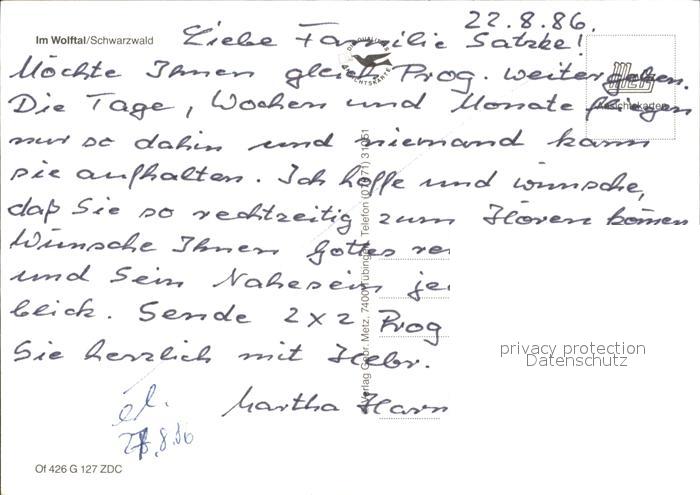 22.8.86.
Im Wolftal/Schwarzwald
Liebe Familie Satzke!
Möchte Ihnen gleich Prog. weitergeben.
Die Tage, Wochen und Monate fliegen
nur so dahin und niemand kann
sie aufhalten. Ich hoffe und wünsche,
daß Sie so rechtzeitig zum Hören können
Wünsche Ihnen Gottes re
und Sein Nahesein je
blick. Sende 2x2 Prog
Sie herzlich mit Hebr.
Martha Harn
el.
27.8.86
Of 426 G 127 ZDC
Ansichtskarten
Verlag Gebr. Metz, 7400 Tübingen, Telefon (07071) 31051
privacy protection
Datenschutz